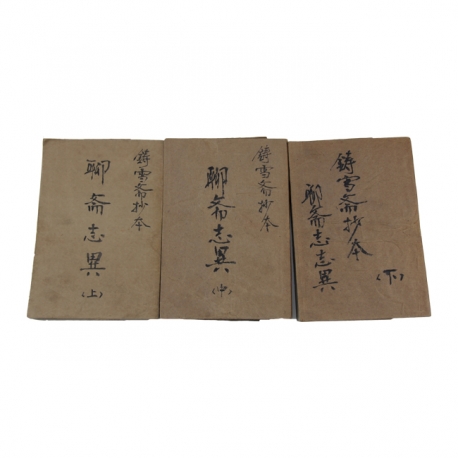 鑄雪斋抄本
聊斋志異
(上)
鑄雪斋抄本
聊斋志異
(中)
鑄雪斋抄本
聊斋志異
(下)